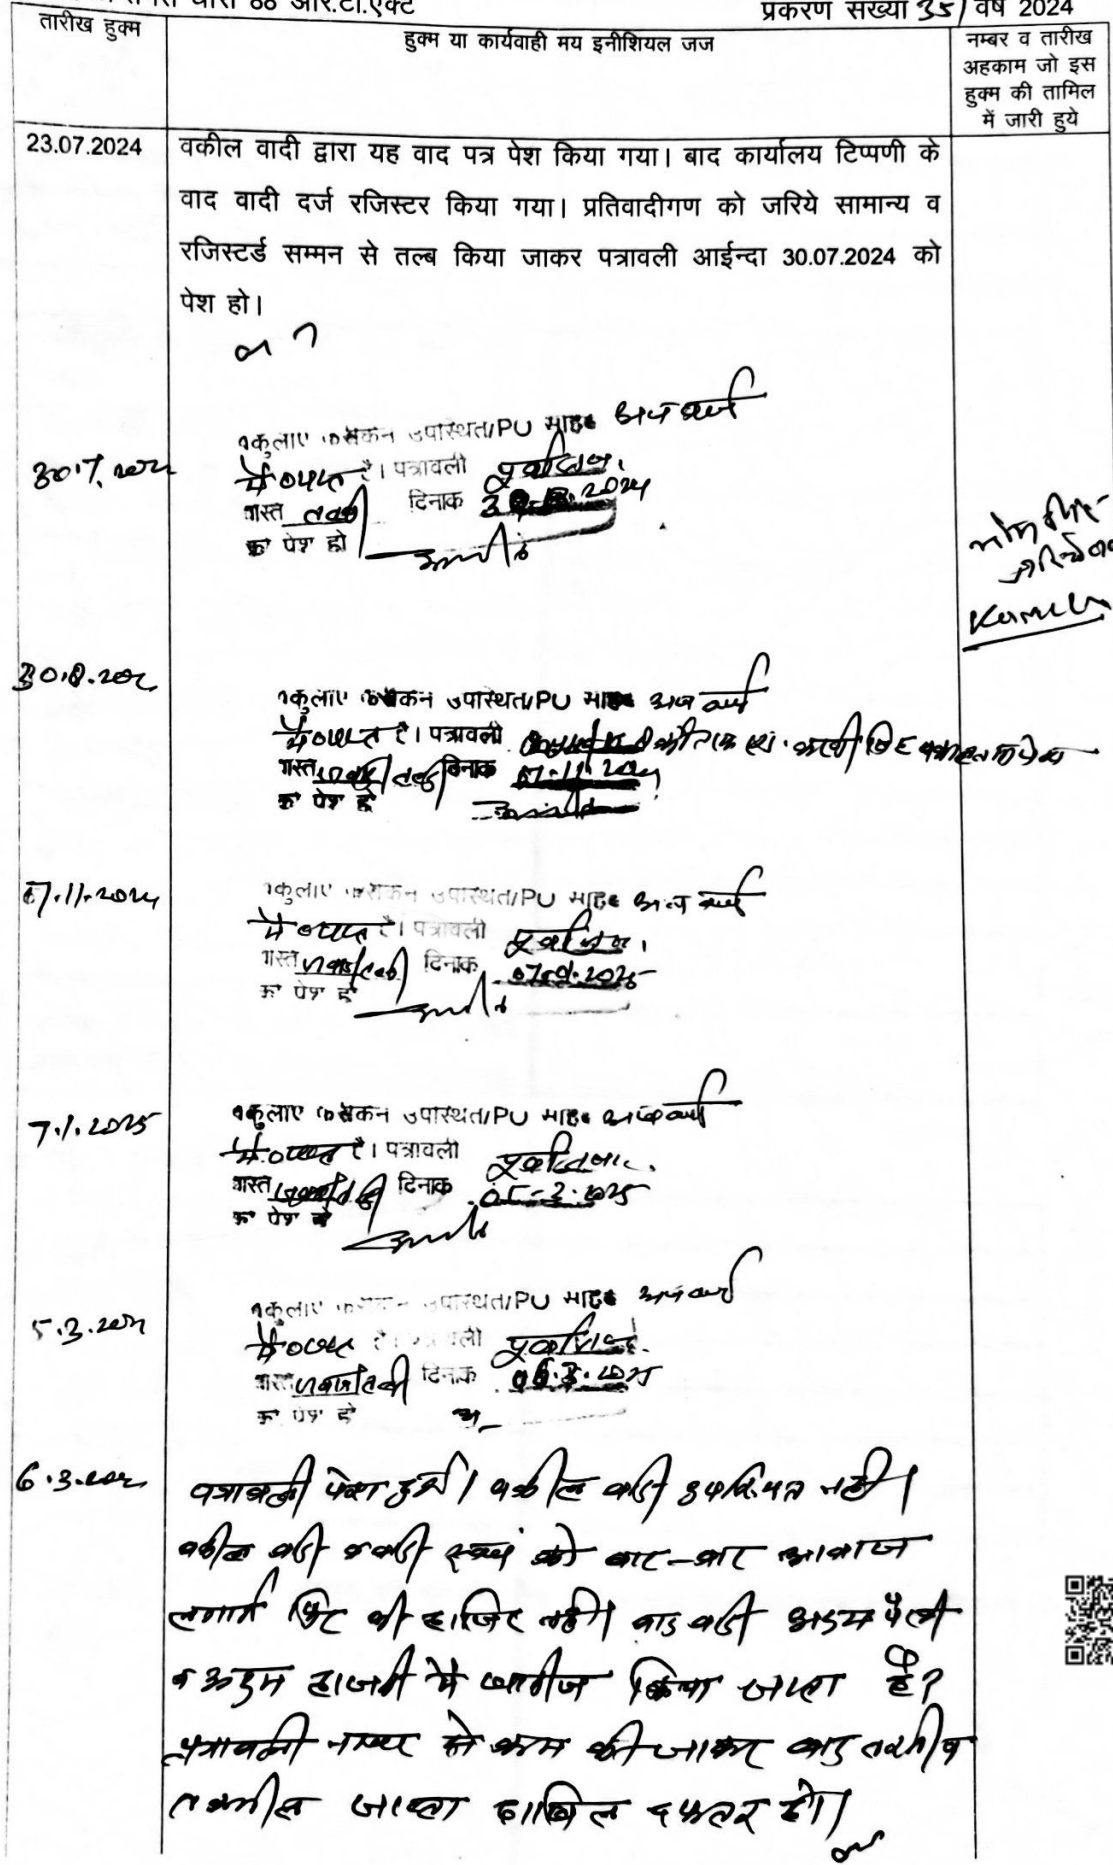 धारा 88 आर.टी.एक्ट
प्रकरण संख्या 35/ वर्ष 2024
तारीख हुक्म
हुक्म या कार्यवाही मय इनीशियल जज
नम्बर व तारीख
अहकाम जो इस
हुक्म की तामिल
में जारी हुये
23.07.2024
वकील वादी द्वारा यह वाद पत्र पेश किया गया। बाद कार्यालय टिप्पणी के
वाद वादी दर्ज रजिस्टर किया गया। प्रतिवादीगण को जरिये सामान्य व
रजिस्टर्ड सम्मन से तल्ब किया जाकर पत्रावली आईन्दा 30.07.2024 को
पेश हो।
30.7.2024
वकुलाए फरीकेन उपस्थित/PU साहब अन्य कार्य
में व्यस्त है। पत्रावली पूर्वानुसार
वास्ते तलबी दिनांक 2024
को पेश हो
30.8.202
वकुलाए फरीकेन उपस्थित/PU साहब अन्य कार्य
में व्यस्त है। पत्रावली
वास्ते दिनांक 07.11.2024
को पेश हो
07.11.2024
वकुलाए फरीकेन उपस्थित/PU साहब अन्य कार्य
में व्यस्त है। पत्रावली पूर्वानुसार
वास्ते दिनांक 07.01.2025
को पेश हो
7.1.2025
वकुलाए फरीकेन उपस्थित/PU साहब अन्य कार्य
में व्यस्त है। पत्रावली पूर्वानुसार
वास्ते दिनांक 05-3-2025
को पेश हो
5.3.202
वकुलाए फरीकेन उपस्थित/PU साहब अन्य कार्य
में व्यस्त है। पत्रावली पूर्वानुसार
वास्ते दिनांक 06.3.2025
को पेश हो
6.3.202
पत्रावली पेश हुई। वकील वादी उपस्थित नहीं।
वकील वादी व वादी स्वयं को बार-बार आवाज
लगाई फिर भी हाजिर नहीं। वाद वादी अदम पैरवी
व अदम हाजरी में खारीज किया जाता है।
पत्रावली नम्बर से कम की जाकर बाद तरतीब
तकमील जाप्ता दाखिल दफ्तर हो।